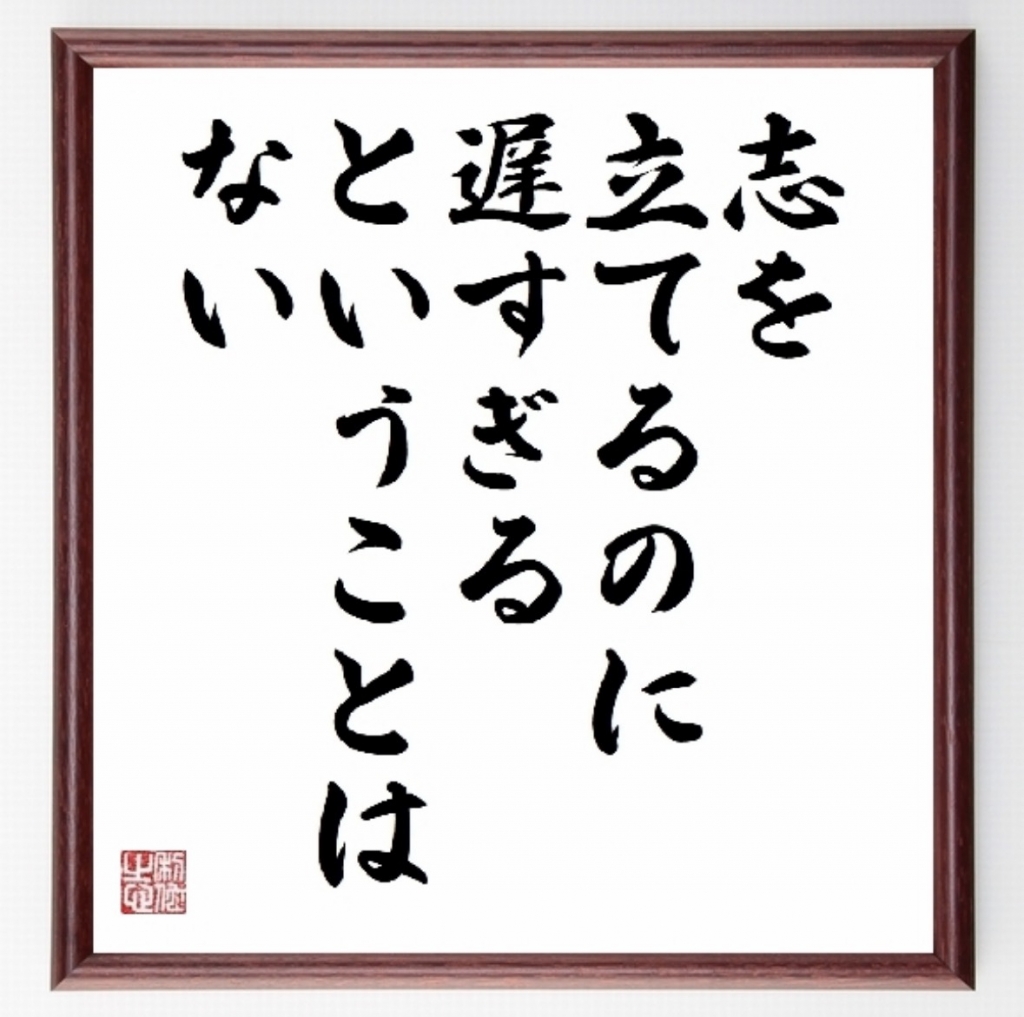 志を
立てるのに
遅すぎる
ということは
ない